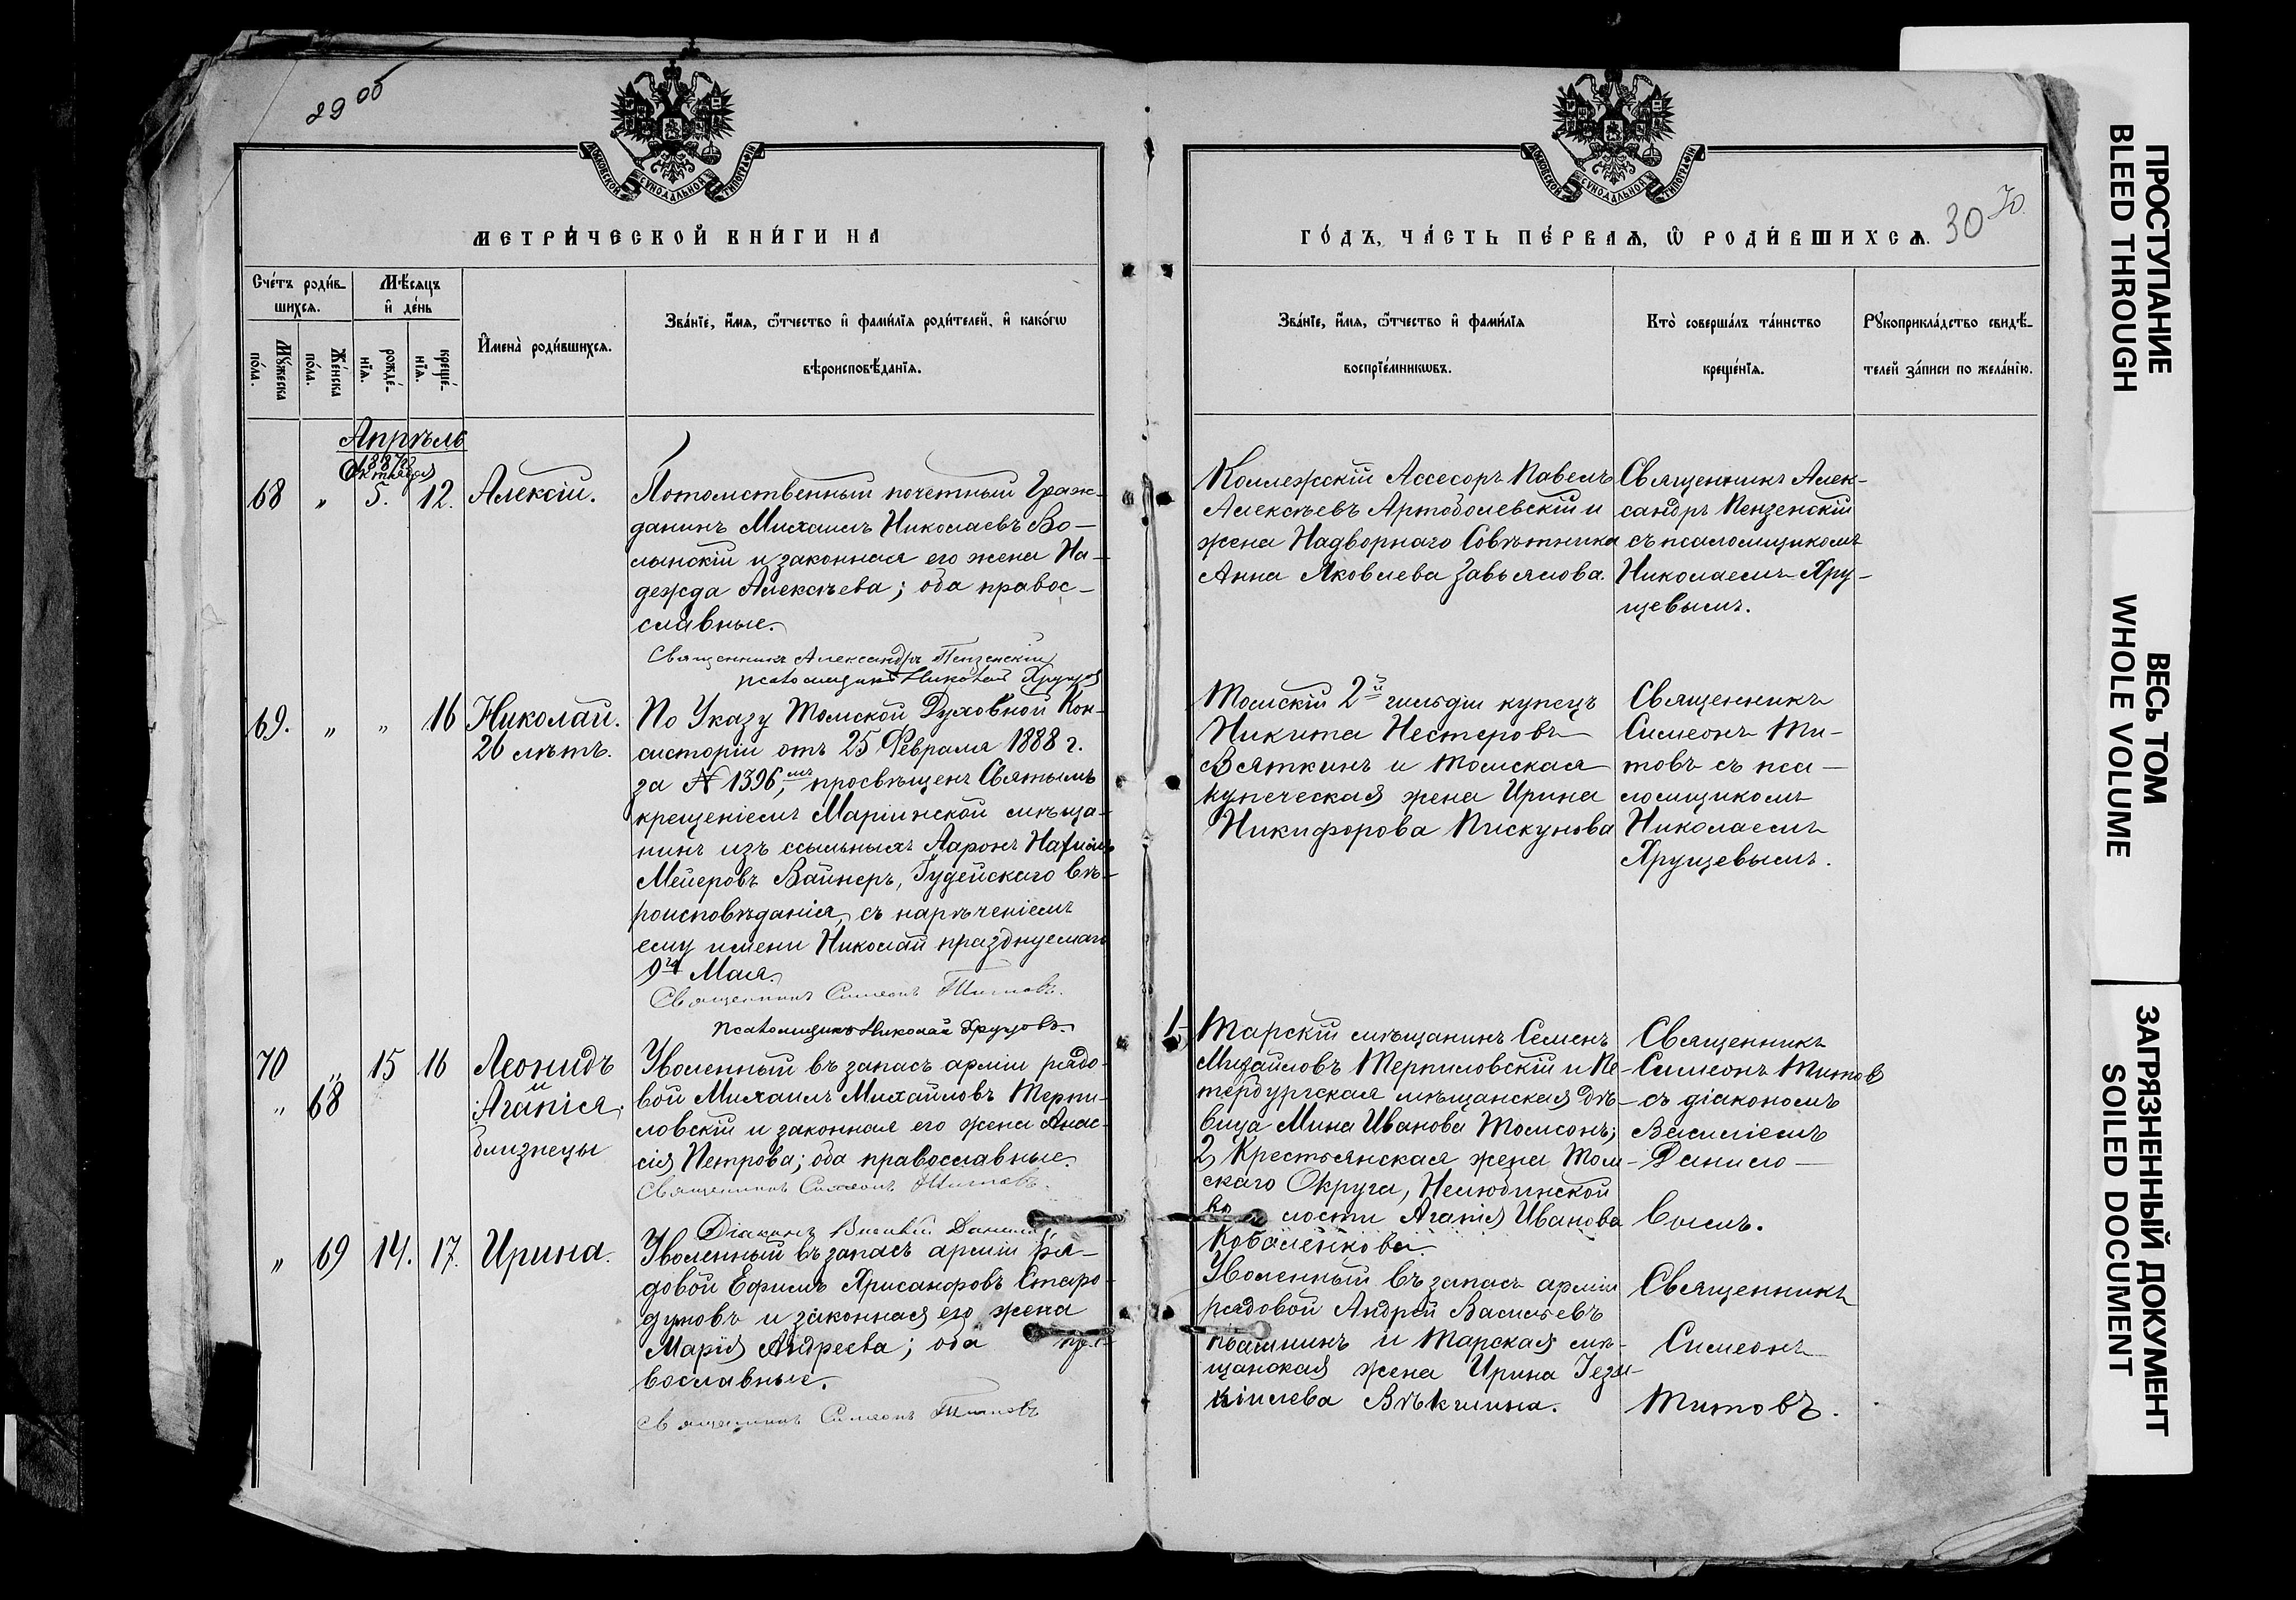 29 об
МОСКОВСКОЙ СѴНОДАЛЬНОЙ ТИПОГРАФІИ
МЕТРИ́ЧЕСКОЙ КНИ́ГИ НА
Сче́тъ роди́в-
шихся.
Мѣ́сяцъ
и҆ де́нь
Мꙋ́жеска
по́ла.
Же́нска
по́ла.
рожде́-
нїѧ.
креще́-
нїѧ.
И҆мена̀ роди́вшихся.
Зва́нїе, и҆́мѧ, ѻ҆́тчество и҆ фами́лїѧ роди́телей, и҆ како́гѡ
вѣроисповѣ́данїѧ.
Апрѣль
1887 г.
Октября
68 " 5. 12. Алексій.
Потомственный почетный Граж-
данинъ Михаилъ Николаевъ Во-
лынскій и законная его жена На-
дежда Алексѣева; оба правос-
славные.
Священникъ Александръ Пензенскій
псаломщикъ Николай Хрущов
69. " " 16 Николай.
26 лѣтъ.
По Указу Томской Духовной Кон-
систоріи отъ 25 Февраля 1888 г.
за № 1396, просвѣщенъ Святымъ
крещеніемъ Маріинской мѣща-
нинъ изъ ссыльныхъ Ааронъ
Мейеровъ Вайнеръ, Іудейскаго вѣ-
роисповѣданія, съ нареченіемъ
ему имени Николай празднуемаго
9го Мая.
Священникъ Симеонъ Титовъ.
Псаломщикъ Николай Хрущовъ.
70 " 15 16 Леонидъ
и
" 68 Агапія.
близнецы
Уволенный въ запасъ арміи рядо-
вой Михаилъ Михайловъ Терпи-
ловскій и законная его жена Анас-
сія Петрова; оба православные.
Священникъ Симеонъ Титовъ.
Діаконъ Василій Данилов
" 69 14. 17. Ирина.
Уволенный въ запасъ арміи ря-
довой Ефимъ Хрисанфовъ Старо-
думовъ и законная его жена
Марія Андреева; оба пра-
вославные.
Священникъ Симеонъ Титовъ
МОСКОВСКОЙ СѴНОДАЛЬНОЙ ТИПОГРАФІИ
ГО́ДЪ, ЧА́СТЬ ПЕ́РВАѦ, Ѡ҆ РОДИ́ВШИХСѦ.
30 30
Зва́нїе, и҆́мѧ, ѻ҆́тчество и҆ фами́лїѧ
воспрїе́мникѡвъ.
Кто̀ соверша́лъ та́инство
креще́нїѧ.
Рꙋкоприкла́дство свидѣ́-
телей за́писи по жела́нїю.
Коллежскій Ассесоръ Павелъ
Алексѣевъ Артоболевскій и
жена Надворнаго Совѣтника
Анна Яковлева Завьялова.
Священникъ Алек-
сандръ Пензенскій
съ псаломщикомъ
Николаемъ Хру-
щевымъ.
Томскій 2й гильдіи купецъ
Никита Нестеровъ
Вяткинъ и Томская
купеческая жена Ирина
Никифорова Пискунова
Священникъ
Симеонъ Ти-
товъ съ пса-
ломщикомъ
Николаемъ
Хрущевымъ.
1, Тарскій мѣщанинъ Семенъ
Михайловъ Терпиловскій и Пе-
тербургская мѣщанская дѣ-
вица Мина Иванова Томсонъ;
2, Крестьянская жена Том-
скаго Округа, Нелюбинской
волости Агапія Иванова
Коваленкова.
Священникъ
Симеонъ Титов
съ діакономъ
Василіемъ
Данило-
вымъ.
Уволенный въ запасъ арміи
рядовой Андрей Васильевъ
и Тарская мѣ-
щанская жена Ирина Іезе-
кіилева Вѣкшина.
Священникъ
Симеонъ
Титовъ.
ПРОСТУПАНИЕ
BLEED THROUGH
ВЕСЬ ТОМ
WHOLE VOLUME
ЗАГРЯЗНЕННЫЙ ДОКУМЕНТ
SOILED DOCUMENT